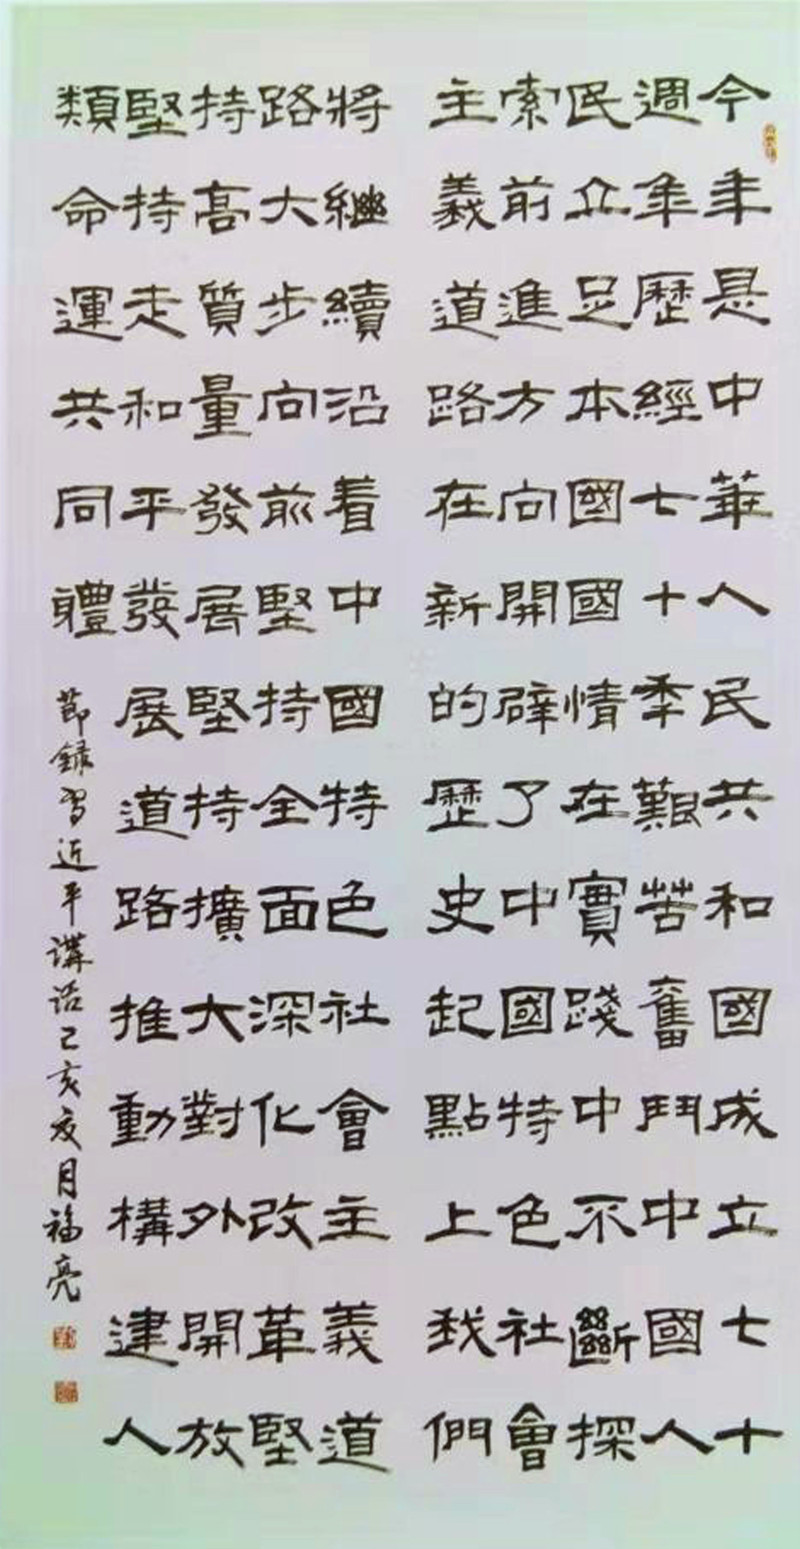 今年是中華人民共和國成立七十
週年歷經七十年艱苦奮鬥中國人
民立足本國國情在實踐中不斷探
索前進方向開辟了中國特色社會
主義道路在新的歷史起點上我們
將繼續沿着中國特色社會主義道
路大步向前堅持全面深化改革堅
持高質量發展堅持擴大對外開放
堅持走和平發展道路推動構建人
類命運共同體
節錄習近平講話己亥夏月福亮